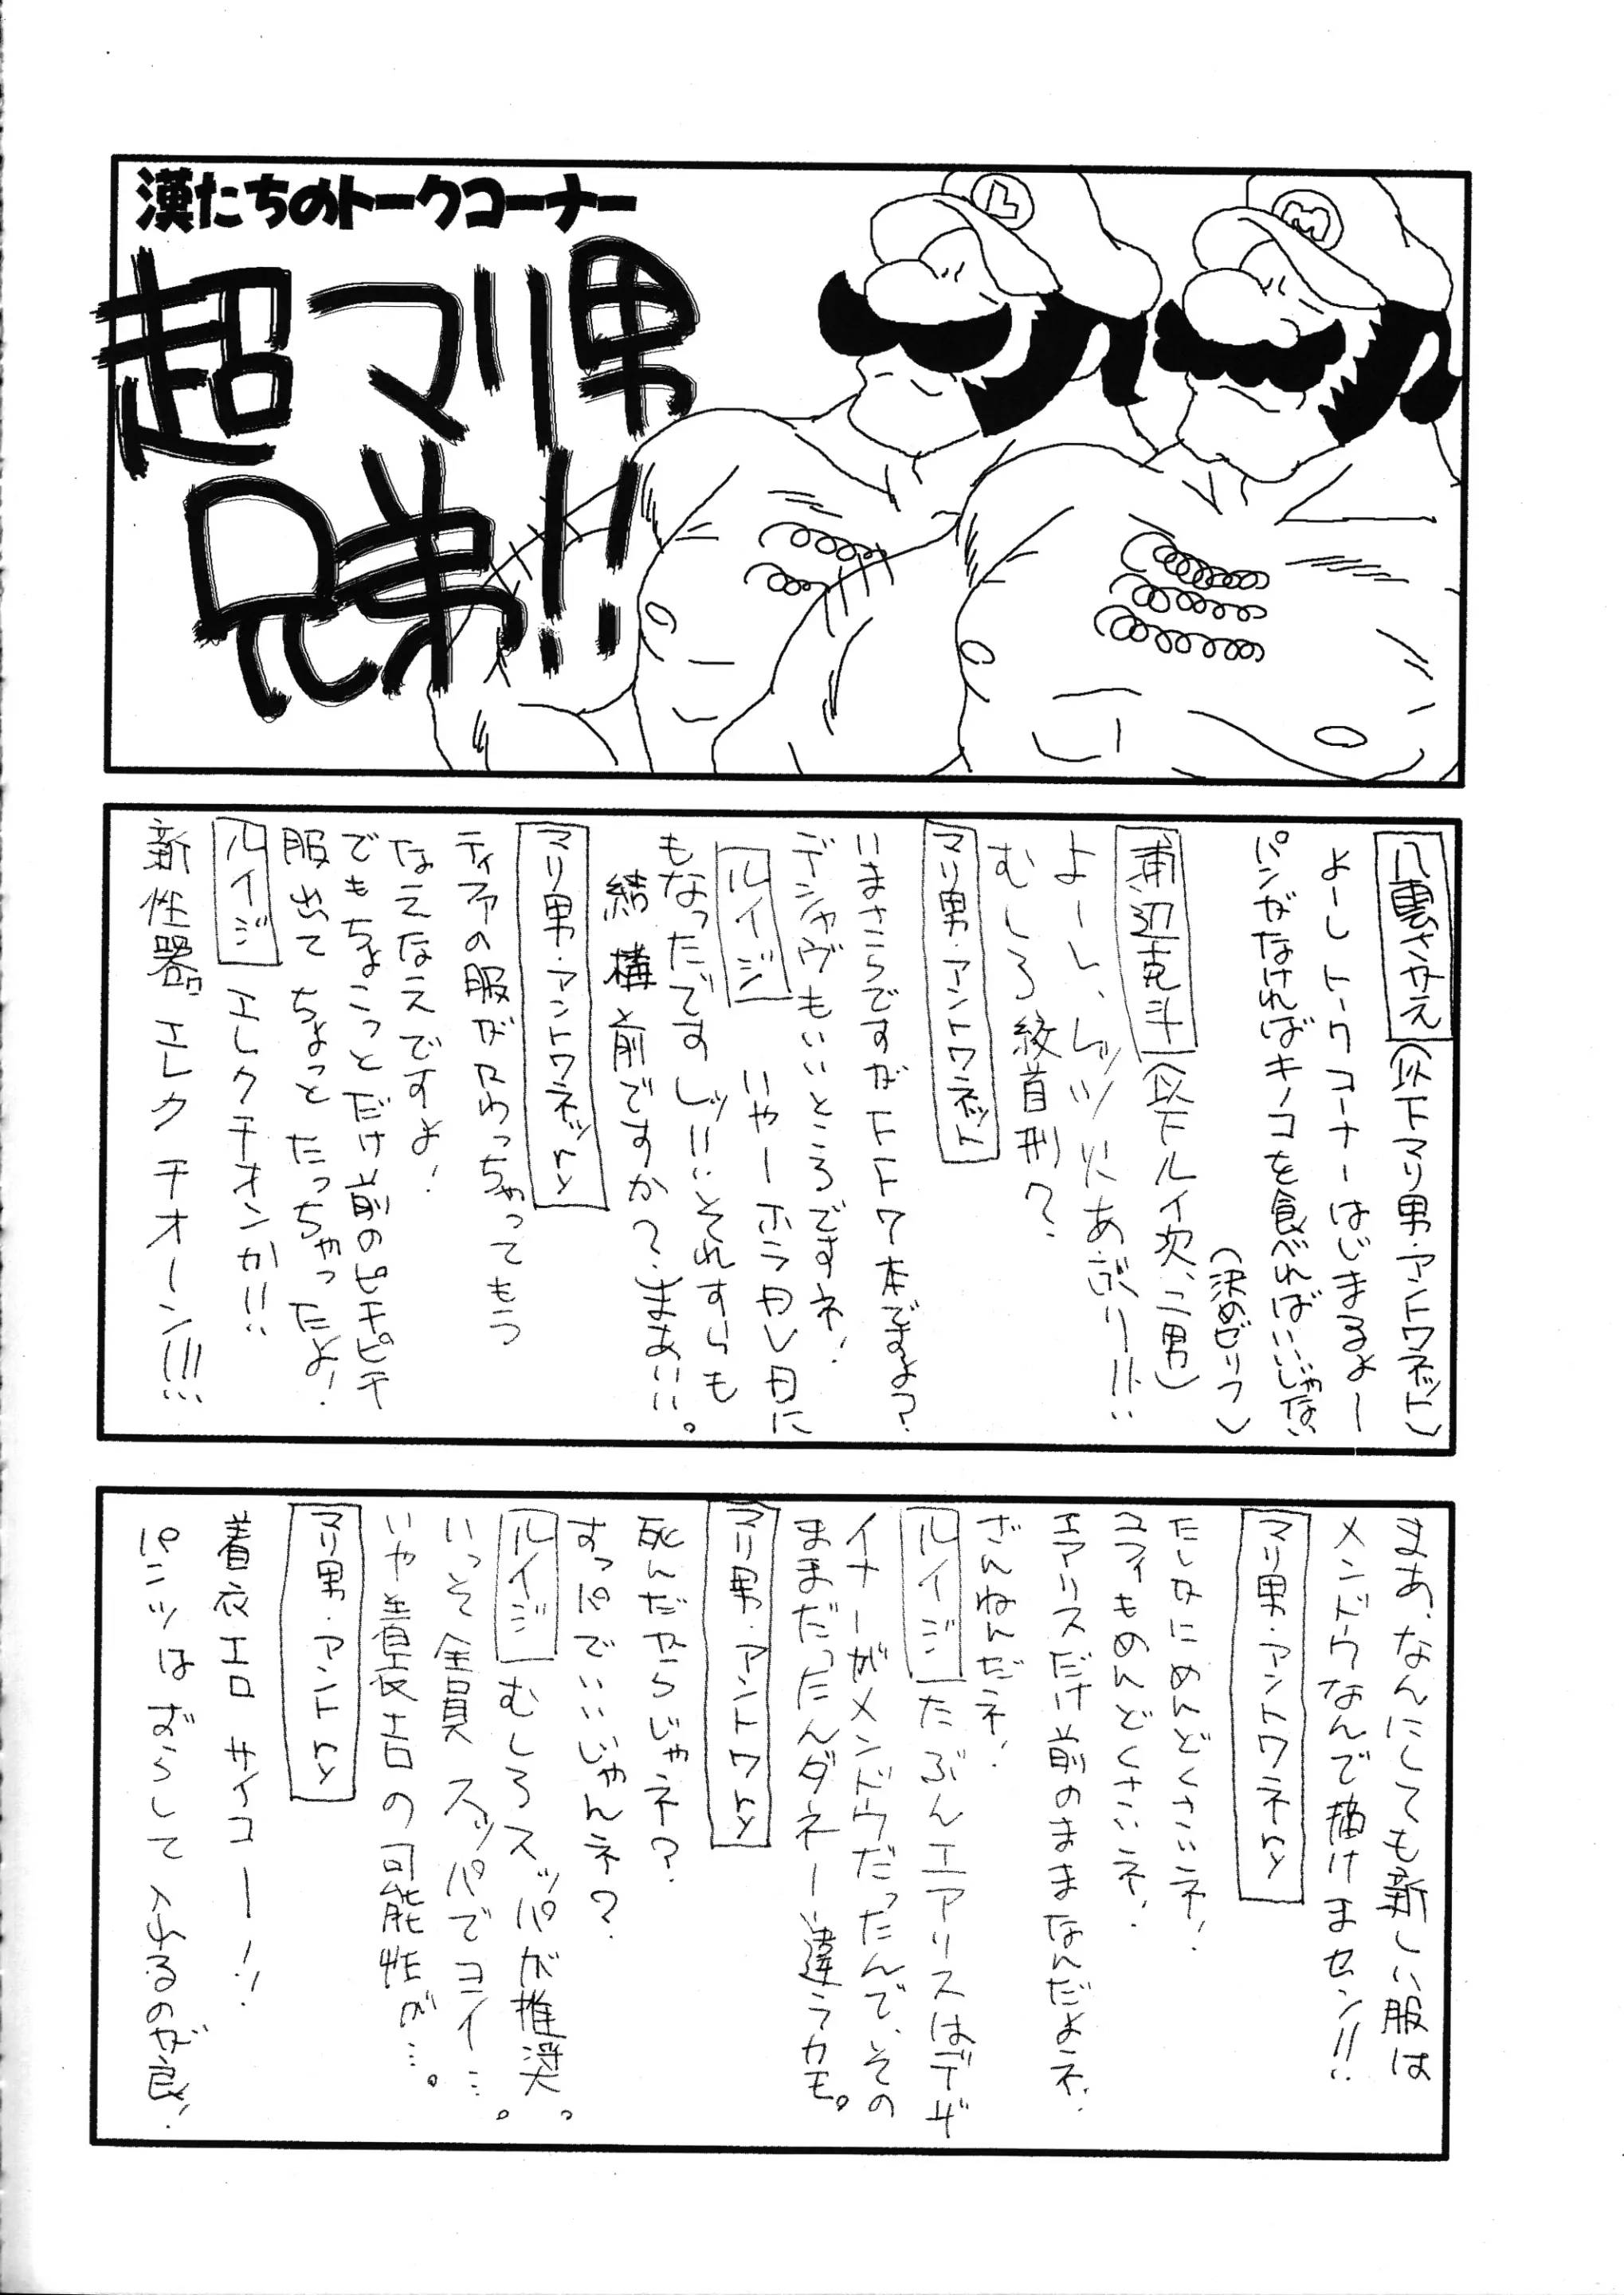 漢たちのトークコーナー
超マリ男
兄弟!!
L
M
八重さかえ(以下マリ男・アントワネット)
よーしトークコーナーはじまるよー
パンがなければキノコを食べればいいじゃない
(決めゼリフ)
浦辺克斗(以下ルイ次、二男)
よーし、レッツ火あぶりー!!
むしろ絞首刑?
マリ男・アントワネット
いまさらですがFF7本ですよ?
デジャヴもいいところですネ!
ルイジ いやーホラFF7に
もなったです しッ!!いそれすらも
結構前ですか?まあいい。
マリ男・アントワネッry
ティファの服がかわっちゃってもう
なえなえですよ!
でもちょこっとだけ前のピチピチ
服出て ちょっと たっちゃったよ!
ルイジ エレクチオンか!!
新性器 エレクチオーン!!!
まあ、なんにしても新しい服は
メンドウなんで描けませン!!
マリ男・アントワネry
たしかにめんどくさいネ!
ユフィもめんどくさいネ!
エアリスだけ前のままなんだよネ!
ざんねんだネ!
ルイジ たぶんエアリスはデザ
イナーがメンドウだったんで、その
ままだったんダネー違うカモ。
マリ男・アントワry
死んだからじゃネ?
すっパでいいじゃんネ?
ルイジ むしろスッパが推奨。
いっそ全員スッパでコイ…。
いや着衣エロの可能性が…。
マリ男・アントry
着衣エロ サイコー!!
パンツはずらして入れるのが良!